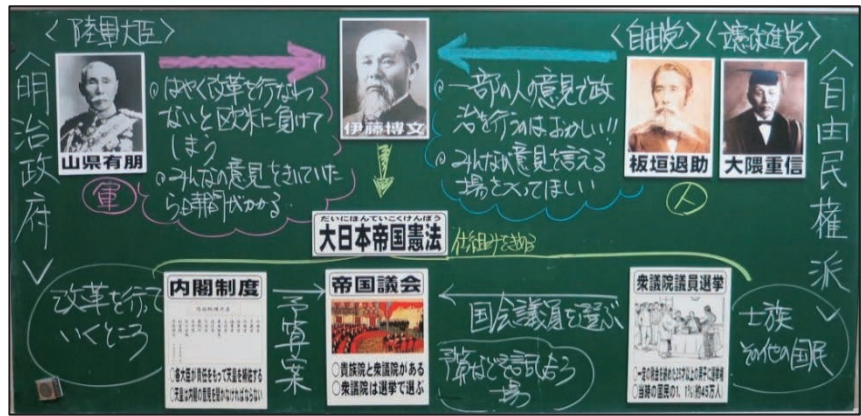 〈明治政府〉
〈陸軍大臣〉
山県有朋
軍
○はやく改革を行なわ
ないと欧米に負けて
しまう
○みんなの意見をきいていた
ら時間がかかる
伊藤博文
〈自由党〉
〈立憲改進党〉
○一部の人の意見で政
治を行うのはおかしい!!
○みんなの意見を言える
場を作ってほしい
板垣退助
大隈重信
人
〈自由民権派〉
だいにほんていこくけんぽう
大日本帝国憲法
仕組みをきめる
改革を行って
いくところ
内閣制度
○各大臣が責任をもって天皇を補佐する
○天皇は内閣の意見を聞かなければならない
予算案
帝国議会
○貴族院と衆議院がある
○衆議院は選挙で選ぶ
国会議員を選ぶ
予算などを話し合う
場
衆議院議員選挙
○一定の税金を納めた25才以上の男子に選挙権
○当時の国民の1.1%(約45万人)
士族
その他の国民